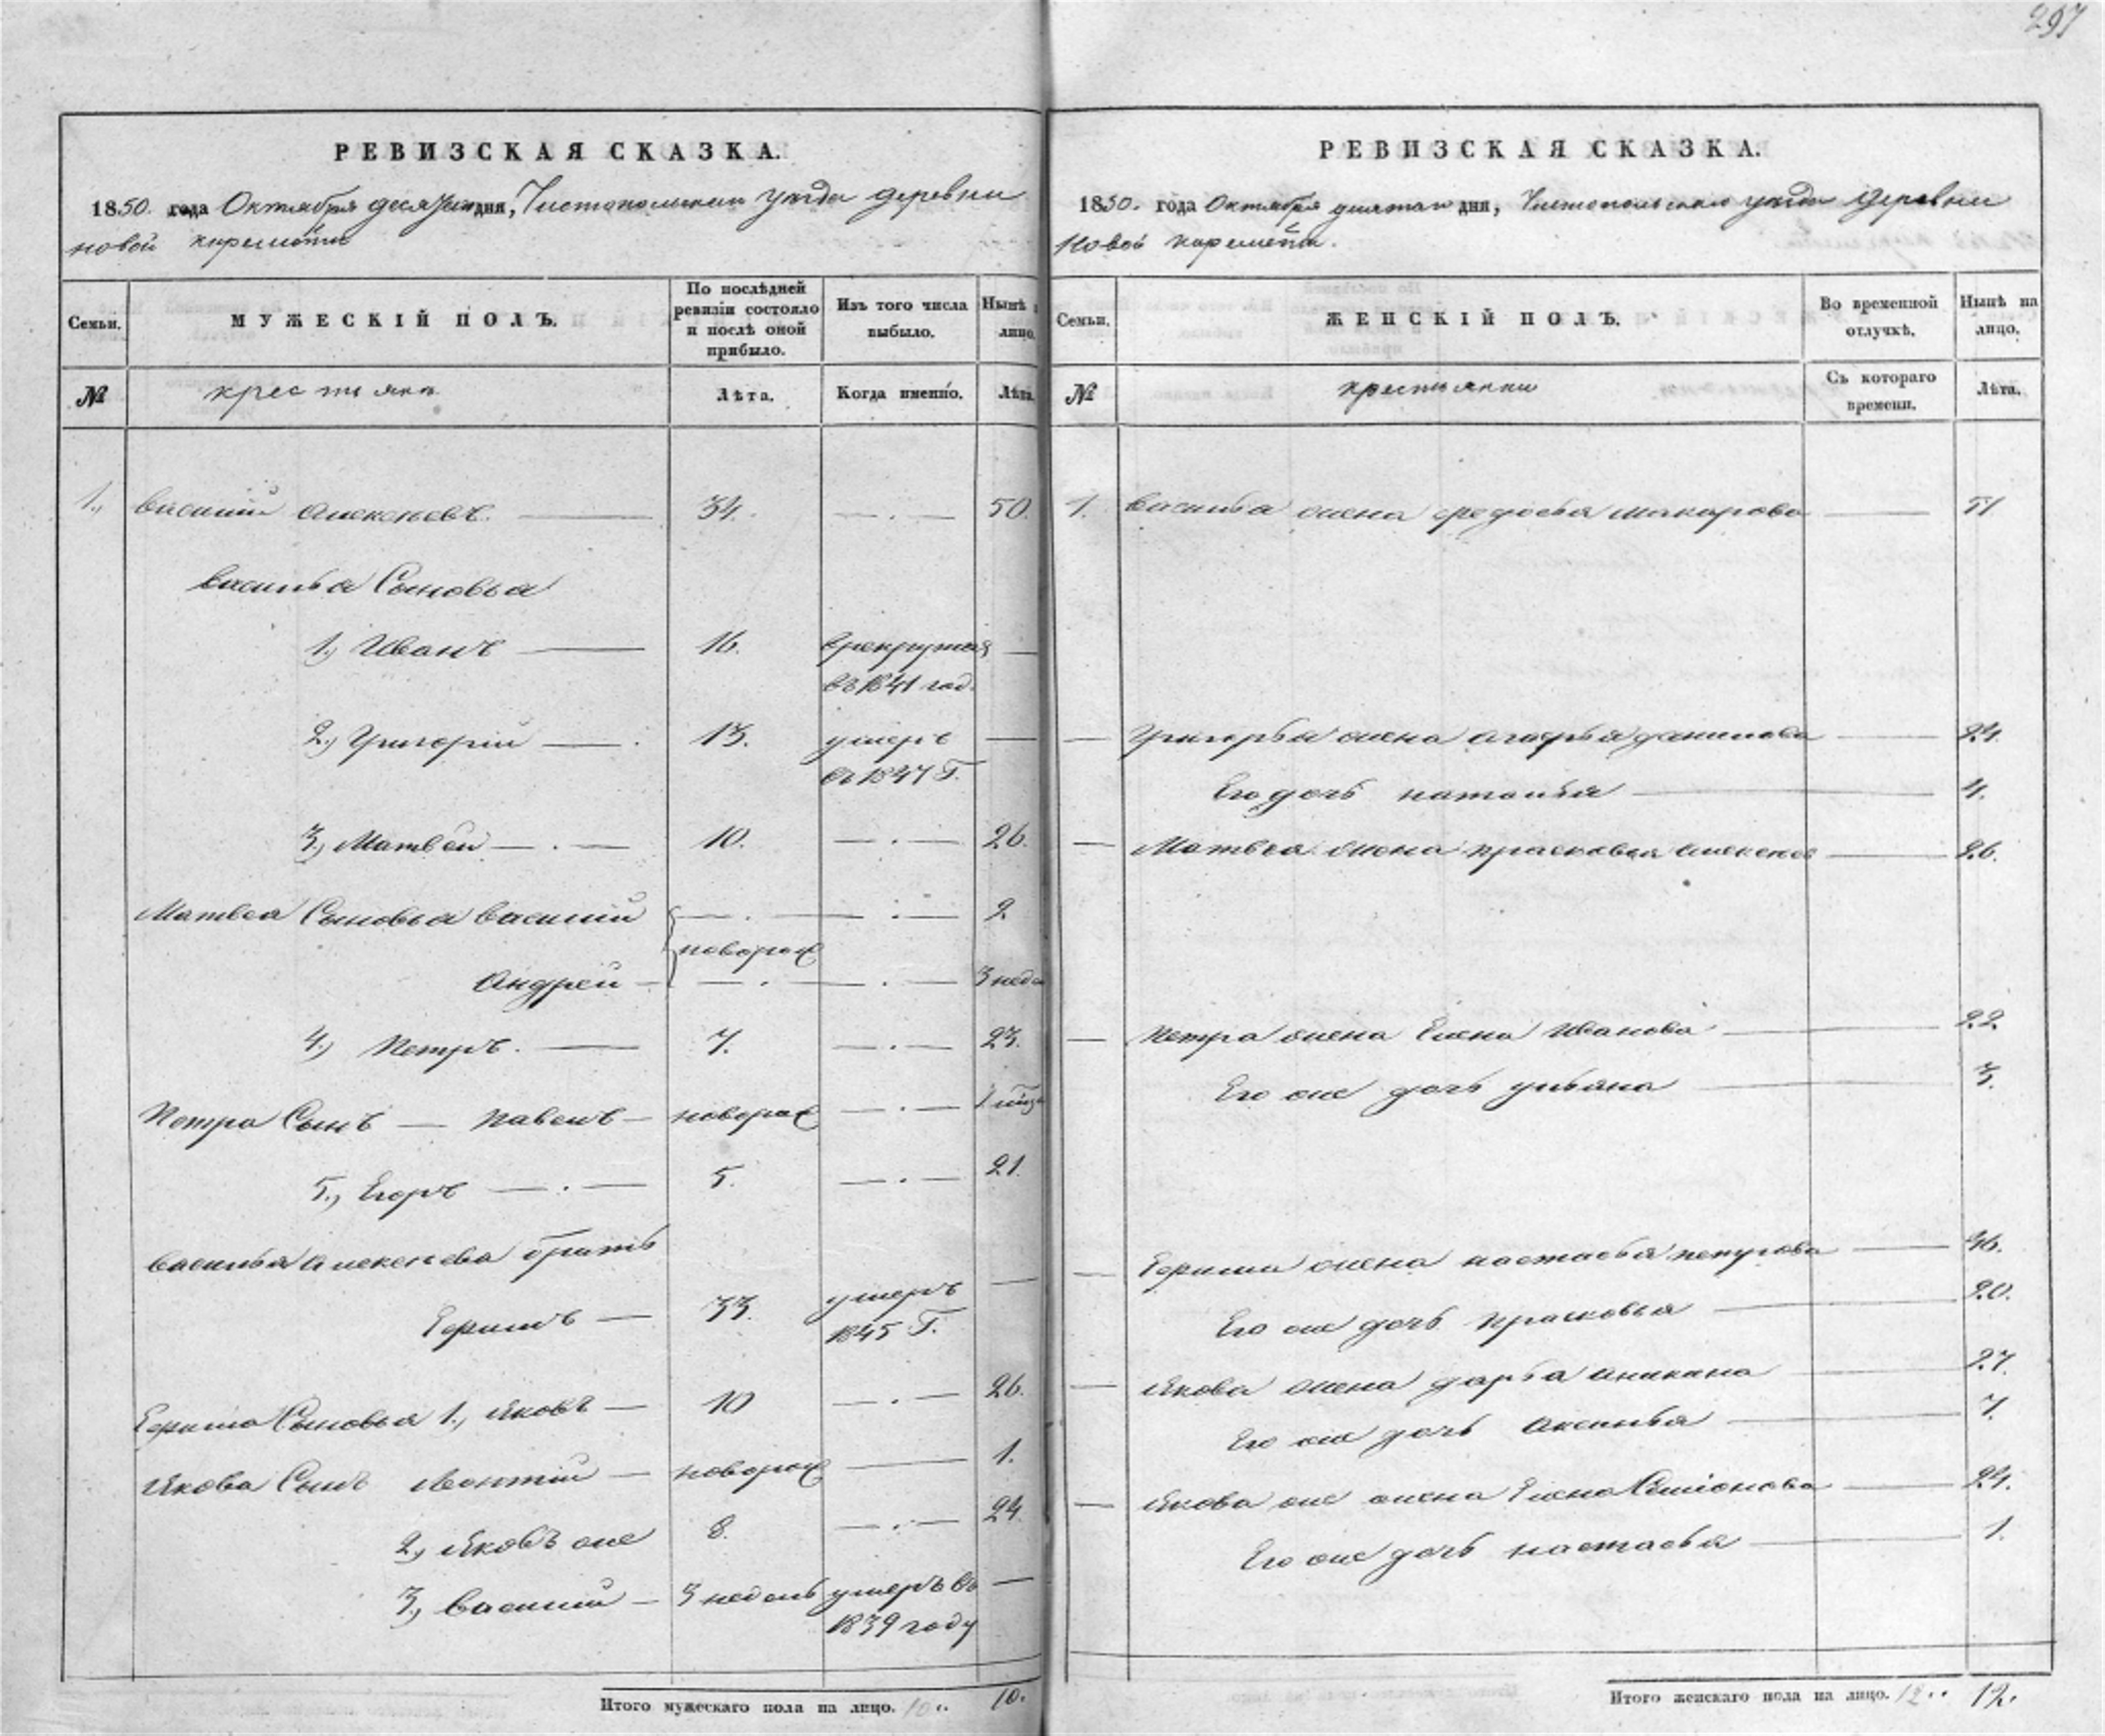 297
РЕВИЗСКАЯ СКАЗКА.
1850. года Октября десятаго дня, Чистопольскаго уезда деревни
новой киремети
Семьи. МУЖЕСКІЙ ПОЛЪ. По послѣдней ревизіи состояло и послѣ оной прибыло. Изъ того числа выбыло. Нынѣ лицо.
№ крестьянъ Лѣта. Когда именно. Лѣта.
1., василий алексеевъ. 34. 50.
василья Сыновья
1., Иванъ 16. врекрутах
въ 1841 год.
2., Григорий 13. умеръ
въ 1847 Г.
3., Матвей 10. 26.
Матвея Сыновья василий 2.
поворож
Андрей 3 недел
4., Петръ. 7. 23.
Петра Сынъ Павелъ новорож 1
5., Егоръ 5. 21.
василья алексеева братъ
Ефимъ 33. умеръ
1845 Г.
Ефима Сыновья 1., яковъ 10 26.
якова Сынъ Леонтий новорож 1.
2., яковъ же 8. 24.
3., василий 3 недель умеръ въ
1839 году
Итого мужескаго пола на лицо. 10 10.
РЕВИЗСКАЯ СКАЗКА.
1850. года Октября дня, Чистопольскаго уезда деревни
Новой киремети.
Семьи. ЖЕНСКІЙ ПОЛЪ. Во временной отлучкѣ. Нынѣ на лицо.
№ крестьянки Съ котораго времени. Лѣта.
1. василья жена федосья макарова 51
Григорья жена данилова 24.
Его дочь наталья 4.
Матвея жена прасковья алексеев 26.
петра жена Елена Иванова 22.
Его же дочь ульяна 3.
Ефима жена настасья петрова 46.
Его же дочь прасковья 20.
якова жена дарья аникина 27.
Его же дочь аксинья 7.
якова же жена Елена Семионова 24.
Его же дочь настасья 1.
Итого женскаго пола на лицо. 12 12.